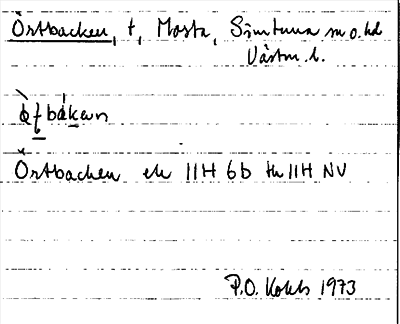 Örtbacken, t, Mosta, Simtuna sn o. hd
Västm. l.
ò̀ƭbákan
Örtbacken ek 11H 6b th 11H NV
P.O. Kolsh 1973